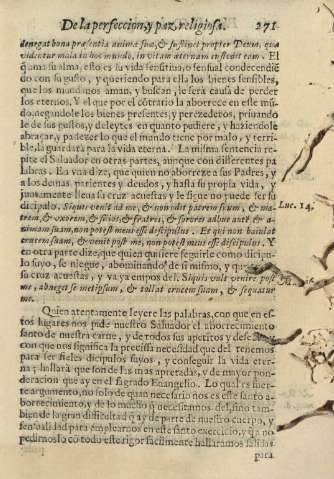 De la perfeccion, y paz religiosa. 271
denegat bona præsentia animæ suæ, & sustinet propter Deum, quæ
videntur mala in hoc mundo, in vitam æternam custodit eam. El
q̃ ama su alma, esto es su vida sensitiua, o sensual condecendiẽ
do con su gusto, y queriendo para ella los bienes sensibles,
que los mundanos aman, y buscan, le serà causa de perder
los eternos. Y el que por el cõtrario la aborrece en este mũ
do, negandole los bienes presentes, y perecederos, priuando
le de sus gustos, y deleytes en quanto pudiere, y haziendole
abraçar, y padezer lo que el mundo tiene por malo, y terri
ble, la guardarà para la vida eterna. La misma sentencia re
pite el Saluador en otras partes, aunque con differentes pa
labras. En vna dize, que quien no aborreze a sus Padres, y
a los demas parientes y deudos, y hasta su propia vida, y
juntamente lleua su cruz acuestas y le sigue no puede ser su
dicipulo. Siquis venit ad me, & non odit patrem suum, & ma-
trem, & vxorem, & filios, & fratres, & sorores adhuc autẽ & a-
nimam suam, non potest meus esse discipulus. Et qui non baiulat
crucem suam, & venit post me, non potest meus esse discipulus. Y
en otra parte dize, que quien quisiere seguirle como dicipu
lo suyo, se niegue, abominando de si mismo, y
su cruz acuestas, y vaya empos del. Siquis vult venire post
me, abneget semetipsum, & tollat crucem suam, & sequatur
me.
Luc. 14.
Quien atentamente leyere las palabras, con que en es-
tos lugares nos pide nuestro Saluador el aborrecimiento
santo de nuestra carne, y de todos sus apetitos y
con que nos significa la precissa necesidad que del tenemos
para ser fieles dicipulos suyos, y conseguir la vida eter
na; hallarà que son de las mas apretadas, y de mayor pon-
deracion que ay en el sagrado Euangelio. Lo qual es fuer-
te argumento, no solo de quan necesario nos es este santo a-
borrecimiento, y de lo mucho q̃ necesitamos del, sino tam
bien de la gran dificultad q̃ ay de parte de nuestro cuerpo, y
sensualidad para emplearnos en este santo exercicio, y q̃ no
pedimoslo cõ todo este rigor facilmente hallaramos salidas
para